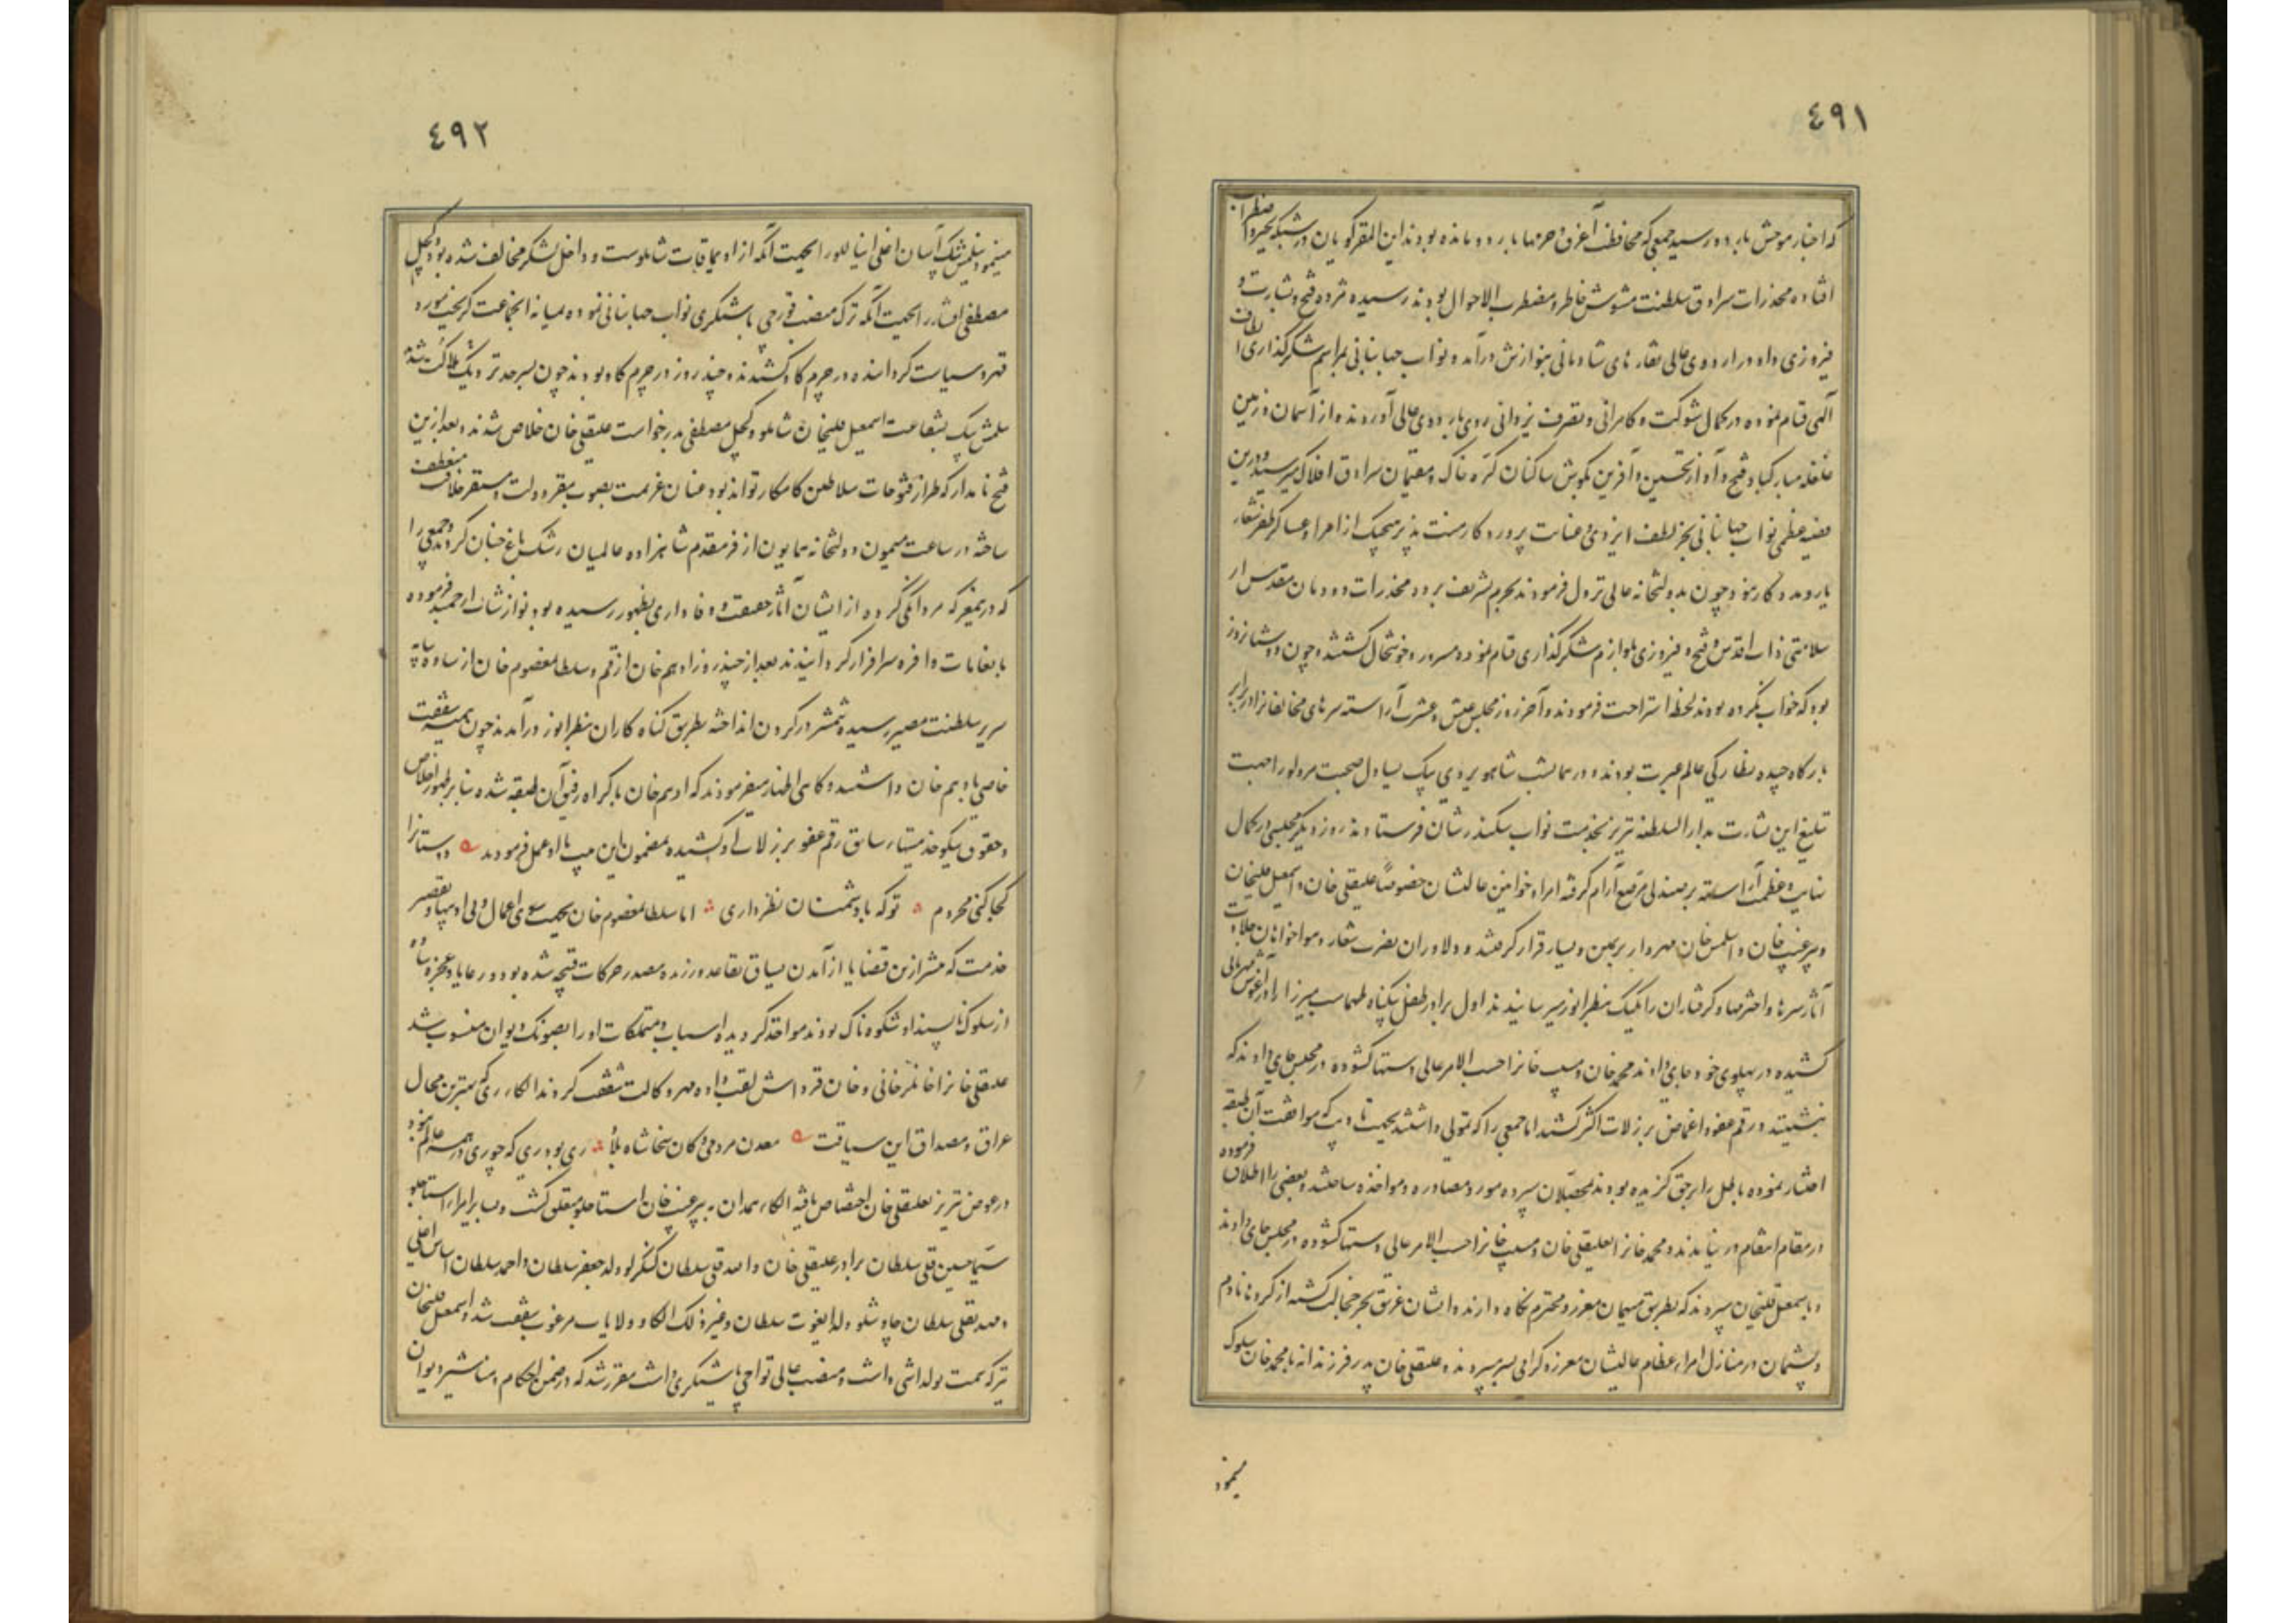 ٤٩١
که اخبار موحش باردو رسید جمعی که محافظت آغرق و حرمها باردو مانده بودند این المفر گویان در شبکه تحیر و اضطراب
افتاده مخدرات سرادق سلطنت مشوش خاطر و مضطرب الاحوال بودند رسیده مژده فتح و بشارت و
فیروزی داد و در اردوی عالی نقاره های شادمانی بنوازش درآمد و نواب جهانبانی بمراسم شکرگذاری الطاف
الهی قیام نموده در کمال شوکت و کامرانی و نصرت یزدانی روی باردوی عالی آوردند و از آسمان و زمین
غلغله مبارکباد فتح و آواز تحسین و آفرین بگوش ساکنان کره خاک و مقیمان سرادق افلاک میرسید و درین
قضیه عظمی نواب جهانبانی بجز لطف ایزدی و عنایت پروردگار منت پذیر هیچیک از امرا و عساکر ظفر شعار
یار و مددکار نبود چون بدولتخانه عالی نزول فرمودند بحرم شریف برده مخدرات دودمان مقدس از
سلامتی ذات اقدس و فتح و فیروزی بلوازم شکرگذاری قیام نموده مسرور و خوشحال گشتند و چون دو شبانروز
بود که خواب نکرده بودند لحظه استراحت فرمودند و آخر روز مجلس عیش و عشرت آراسته سرهای مخالفانرا در برابر
بارگاه چیده نظارگی عالم عبرت بودند و در همانشب شاهویردی بیک یساول صحبت مردلو را جهت
تبلیغ این بشارت بدار السلطنه تبریز بخدمت نواب سکندرشان فرستادند روز دیگر مجلسی در کمال
زینت و عظمت آراسته بر صندلی مرصع آرام گرفته امرا و خوانین عالیشان خصوصاً علیقلی خان و اسمعیل قلیخان
و پیر غیب خان و اسلمس خان مهردار بر یمین و یسار قرار گرفتند و دلاوران نصرت شعار و هواخواهان جلادت
آثار سرها و اخترمها و گرفتاران را یکیک بنظر انور میرسانیدند اول برادر طفل بیگناه طهماسب میرزا را در آغوش مهربانی
کشیده در پهلوی خود جای دادند محمد خان و مسیب خانرا حسب الامر عالی دستها گشوده در مجلس جای دادند که
بنشینند و رقم عفو و اغماض بر زلات اکثر کشیدند اما جمعی را که تمولی داشتند بجهت تادیب که موافقت آن طبقه
اختیار نموده باطل را بر حق گزیده بودند بمحصلان سپرده مورد مصادره و مواخذه ساختند و بعضی را اطلاق فرموده
در مقام انتقام در نیامدند و محمد خانرا بعلیقلی خان و مسیب خانرا حسب الامر عالی دستها گشوده در مجلس جای دادند
و باسمعیل قلیخان سپردند که بطریق میهمان معزز و محترم نگاه دارند و ایشان غریق بحر خجالت گشته از کردها نادم
و پشیمان در منازل امراء عظام عالیشان معزز و گرامی بسر میبردند و علیقلی خان پدر فرزندانه با محمد خان سلوک
مینمود
٤٩٢
مینمود و یلمش بیک آسان اغلی اینالو را بجهت آنکه از اویماقات شاملوست و داخل لشکر مخالف شده بود و کچل
مصطفی افشار را بجهت آنکه ترک منصب قورچی باشیگری نواب جهانبانی نموده بمیانه انجماعت گریخته بود
قهر و سیاست گردانیده در چرم گاو کشیدند و چند روز در چرم گاو بودند چون بسرحد نزدیک هلاکت شدند
یلمش بیک بشفاعت اسمعیل قلیخان شاملو و کچل مصطفی بدرخواست علیقلی خان خلاص شدند و بعد ازین
فتح نامدار که طراز فتوحات سلاطین کامکار تواند بود عنان عزیمت بصوب مقر دولت و مستقر خلافت منعطف
ساخته در ساعت میمون دولتخانه همایون از فر مقدم شاهزاده عالمیان رشک باغ جنان گردید و جمعی را
که در معرکه مردانگی کرده از ایشان آثار حقیقت و وفاداری بظهور رسیده بود بنوازشات ارجمند فرموده
بانعامات وافره سرافراز گردانیدند بعد از چند روز ادهم خان از قم و سلطان معصوم خان از ساوه بپایه
سریر سلطنت مصیر رسیده شمشیر در گردن انداخته بطریق گناه کاران بنظر انور درآمدند چون همیشه شفقت
خاصی بادهم خان داشتند و گاهی اظهار میفرمودند که ادهم خان باکراه رفیق آن طبقه شده بنابر ظهور اخلاص
و حقوق نیکو خدمتیهاء سابق رقم عفو بر زلات او کشیده بمضمون این بیت با او عمل فرمودند دوستانرا
کجا کنی محروم تو که با دشمنان نظر داری اما سلطان معصوم خان بجهت سوی اعمال و بی ادبیها و تقصیر
خدمت که پیشتر ازین قضایا از آمدن یساق تقاعد ورزیده مصدر حرکات قبیحه شده بود و رعایا و عجزه ساوه
از سلوک ناپسند او شکوه ناک بودند مواخذ گردیده اسباب و متملکات او را بصیونک دیوان منسوب شد
علیقلی خانرا خانلر خانی و خان قرداش لقب داده مهر وکالت شفقت کردند الکاء ری که بهترین محال
عراق و مصداق این سیاقت معدن مردمی و کان سخا شاه بلاد ری بود ری که چو ری در همه عالم نبود
در عوض تبریز بعلیقلی خان اختصاص یافته الکاء همدان به پیر غیب خان استاجلو متعلق گشت و سایر امراء استاجلو
سیما حسین قلی سلطان برادر علیقلی خان و امت قلی سلطان کنگرلو ولد جعفر سلطان و احمد سلطان اساس اغلی
و مهدیقلی سلطان چاوشلو ولد ایغوت سلطان و غیر ذلک الکا و ولایات مرغوب شفقت شد و اسمعیل قلیخان
نیز که سمت یولداشی داشت و منصب عالی تواچی باشیگری داشت مقرر شد که در ضمن احکام و مناشیر دیوان